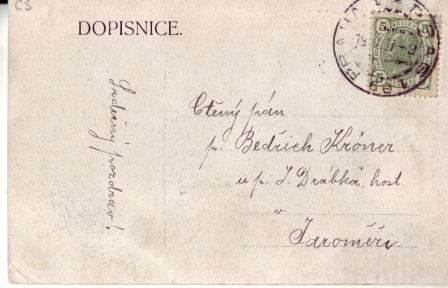 CS
DOPISNICE.
5 5
Srdečný pozdrav!
Ctěný pán
p. Bedřich Kröner
u p. J. Drábka, host.
v
Jaroměři